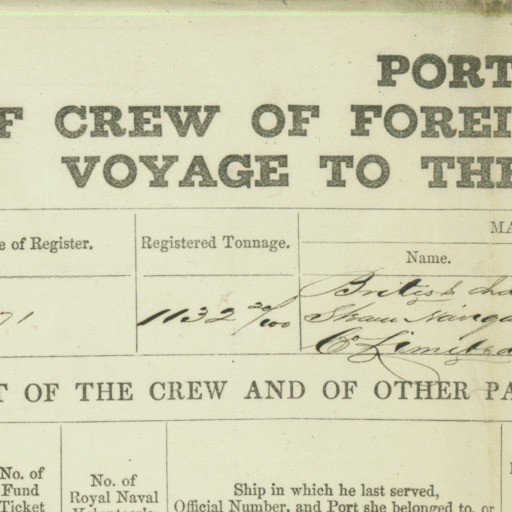 PORT
F CREW OF FOREI
VOYAGE TO THE
MA
e of Register.
Registered Tonnage.
Name.
71
1132 20/100
British
Steam
Co Limited
T OF THE CREW AND OF OTHER PA
No. of
Fund
Ticket
No. of
Royal Naval
Volunteer's
Ship in which he last served,
Official Number, and Port she belonged to, or